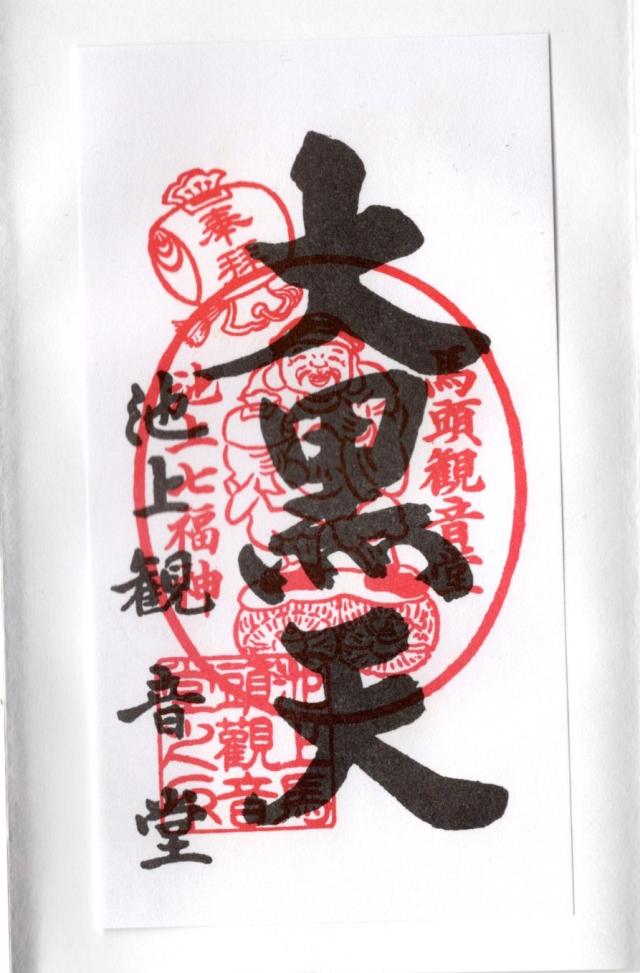 奉拝
大黒天
馬頭觀音堂
池上七福神
池上観音堂
池上馬
頭觀音
堂之印